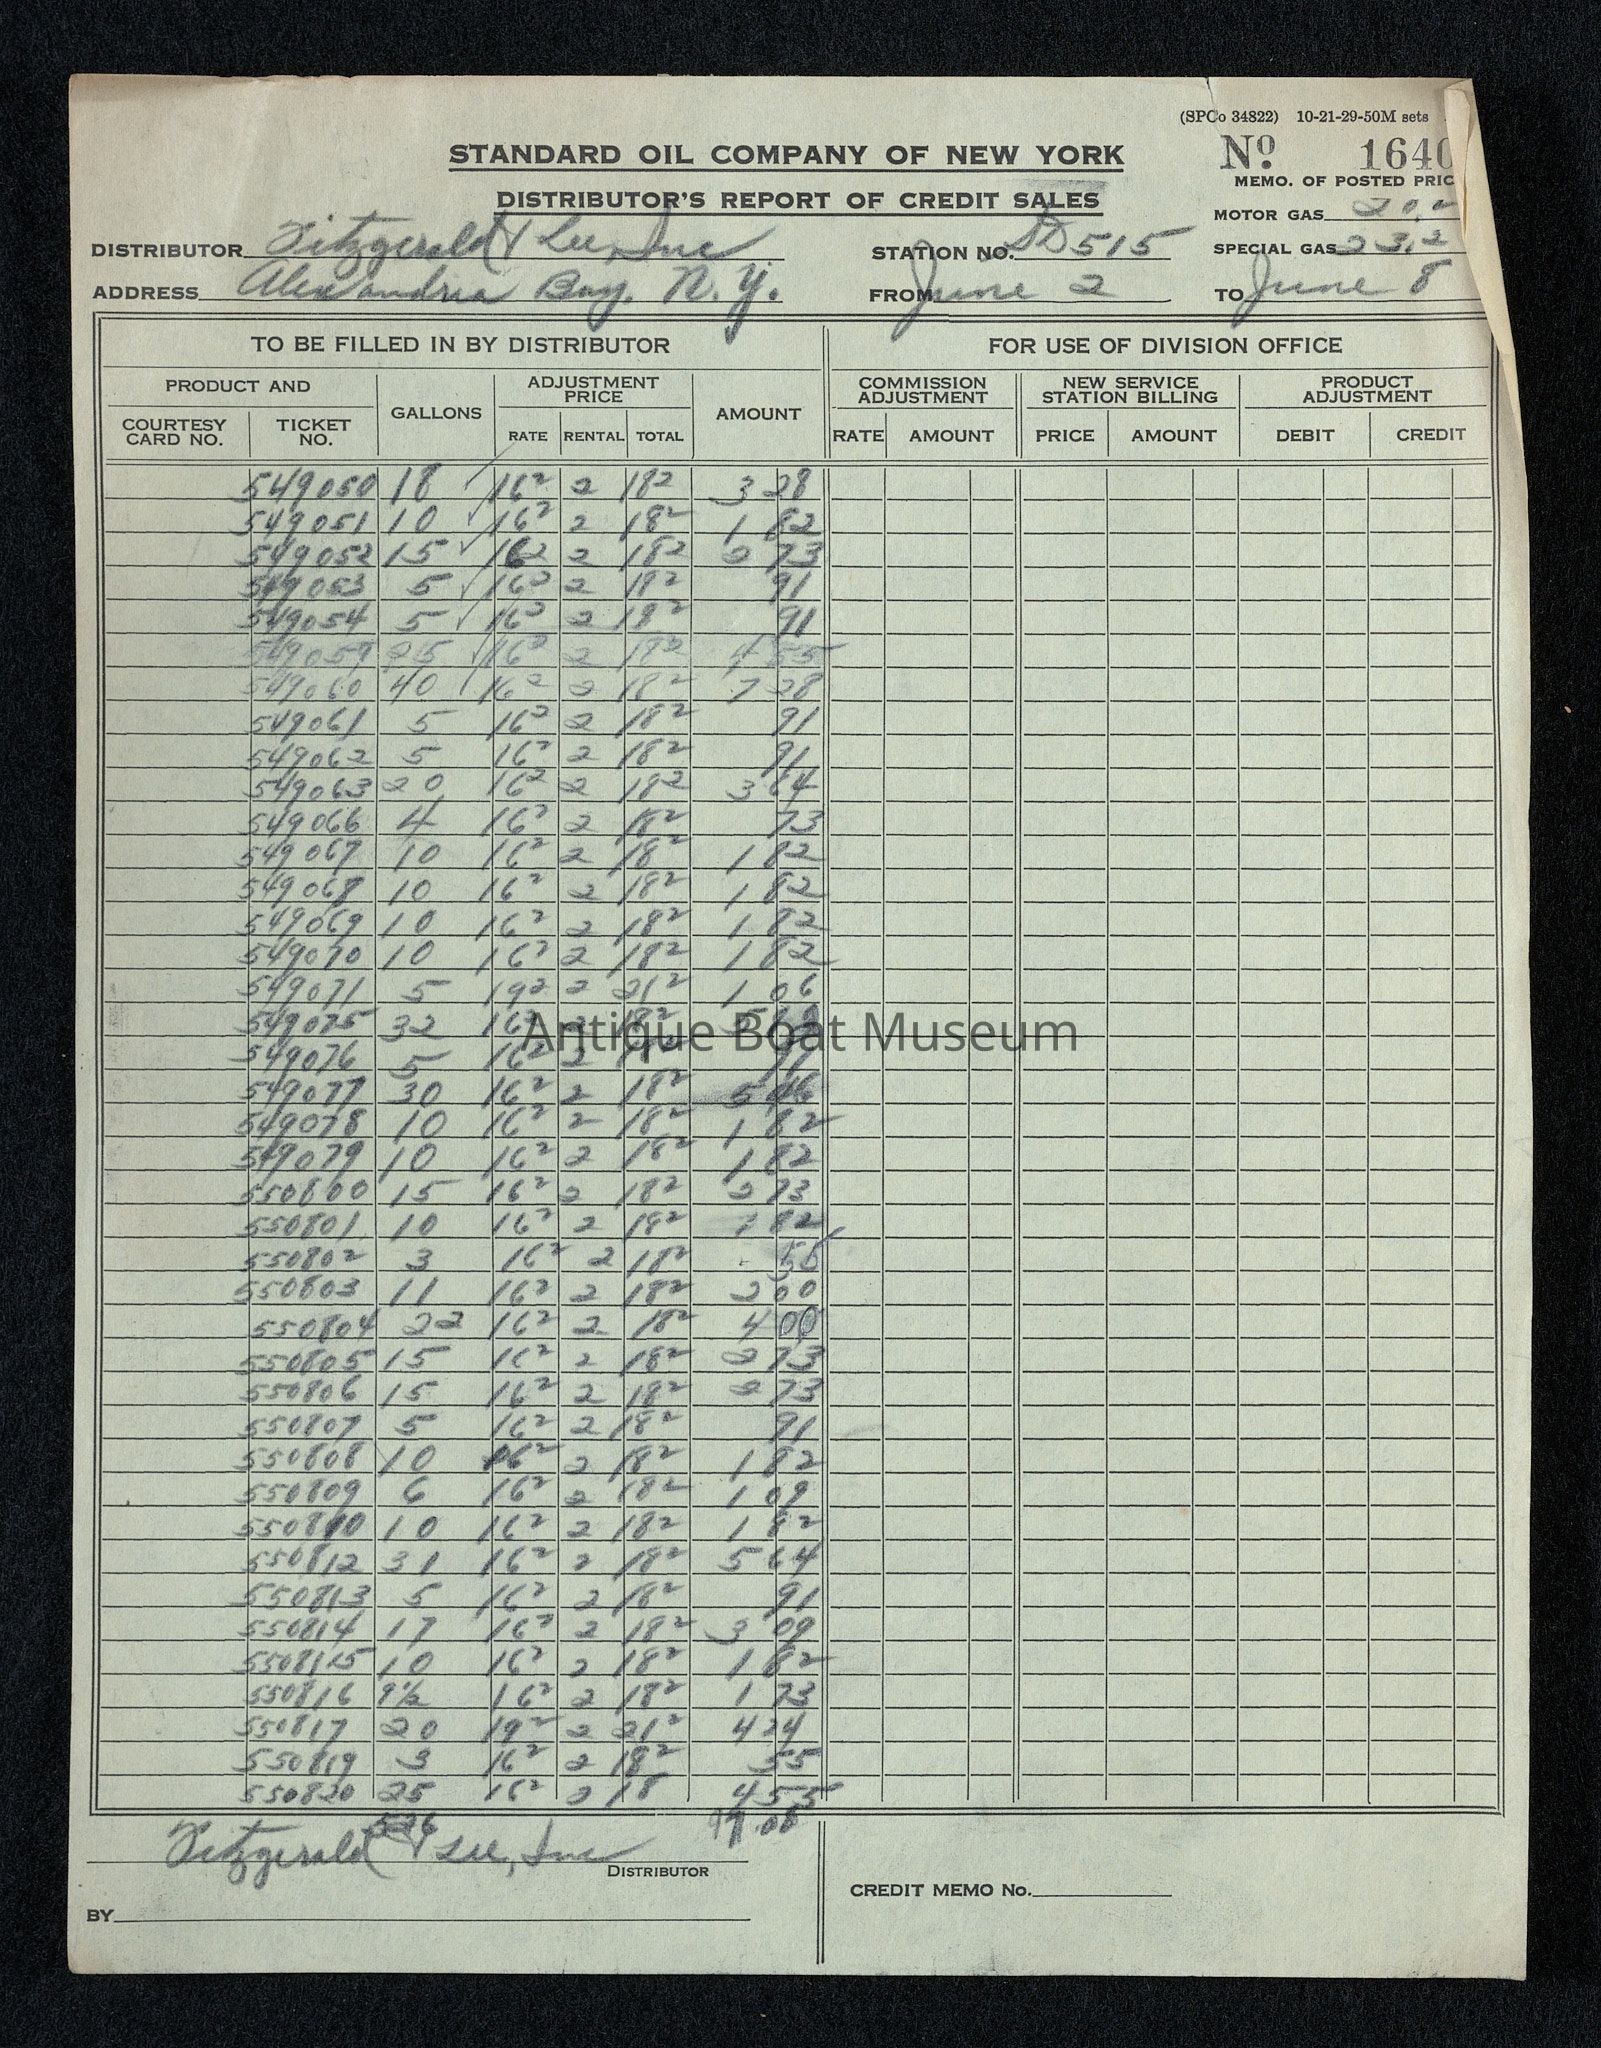 (SPCo 34822) 10-21-29-50M sets
STANDARD OIL COMPANY OF NEW YORK
No. 1640
DISTRIBUTOR'S REPORT OF CREDIT SALES
MEMO. OF POSTED PRIC
MOTOR GAS 20.2
DISTRIBUTOR Fitzgerald & Lee, Inc STATION NO. SD 515 SPECIAL GAS 23.2
ADDRESS Alexandria Bay. N.Y. FROM June 2 TO June 8
TO BE FILLED IN BY DISTRIBUTOR FOR USE OF DIVISION OFFICE
PRODUCT AND GALLONS ADJUSTMENT PRICE AMOUNT COMMISSION ADJUSTMENT NEW SERVICE STATION BILLING PRODUCT ADJUSTMENT
COURTESY CARD NO. TICKET NO. RATE RENTAL TOTAL RATE AMOUNT PRICE AMOUNT DEBIT CREDIT
549050 18 16² 2 18² 3 28
549051 10 16² 2 18² 1 82
549052 15 16² 2 18² 2 73
549053 5 16² 2 18² 91
549054 5 16² 2 18² 91
549059 25 16² 2 18² 4 55
549060 40 16² 2 18² 7 28
549061 5 16² 2 18² 91
549062 5 16² 2 18² 91
549063 20 16² 2 18² 3 64
549066 4 16² 2 18² 73
549067 10 16² 2 18² 1 82
549068 10 16² 2 18² 1 82
549069 10 16² 2 18² 1 82
549070 10 16² 2 18² 1 82
549071 5 19² 2 21² 1 06
549075 32 16² 2 18² 5
Antique Boat Museum
549076 5 16² 2 18² 91
549077 30 16² 2 18² 5 46
549078 10 16² 2 18² 1 82
549079 10 16² 2 18² 1 82
550800 15 16² 2 18² 2 73
550801 10 16² 2 18² 1 82
550802 3 16² 2 18² 55
550803 11 16² 2 18² 2 00
550804 22 16² 2 18² 4 00
550805 15 16² 2 18² 2 73
550806 15 16² 2 18² 2 73
550807 5 16² 2 18² 91
550808 10 16² 2 18² 1 82
550809 6 16² 2 18² 1 09
550810 10 16² 2 18² 1 82
550812 31 16² 2 18² 5 64
550813 5 16² 2 18² 91
550814 17 16² 2 18² 3 09
550815 10 16² 2 18² 1 82
550816 9½ 16² 2 18² 1 73
550817 20 19² 2 21² 4 24
550819 3 16² 2 18² 55
550820 25 16² 2 18 4 55
526 97.08
Fitzgerald & Lee, Inc
DISTRIBUTOR
CREDIT MEMO No.
BY